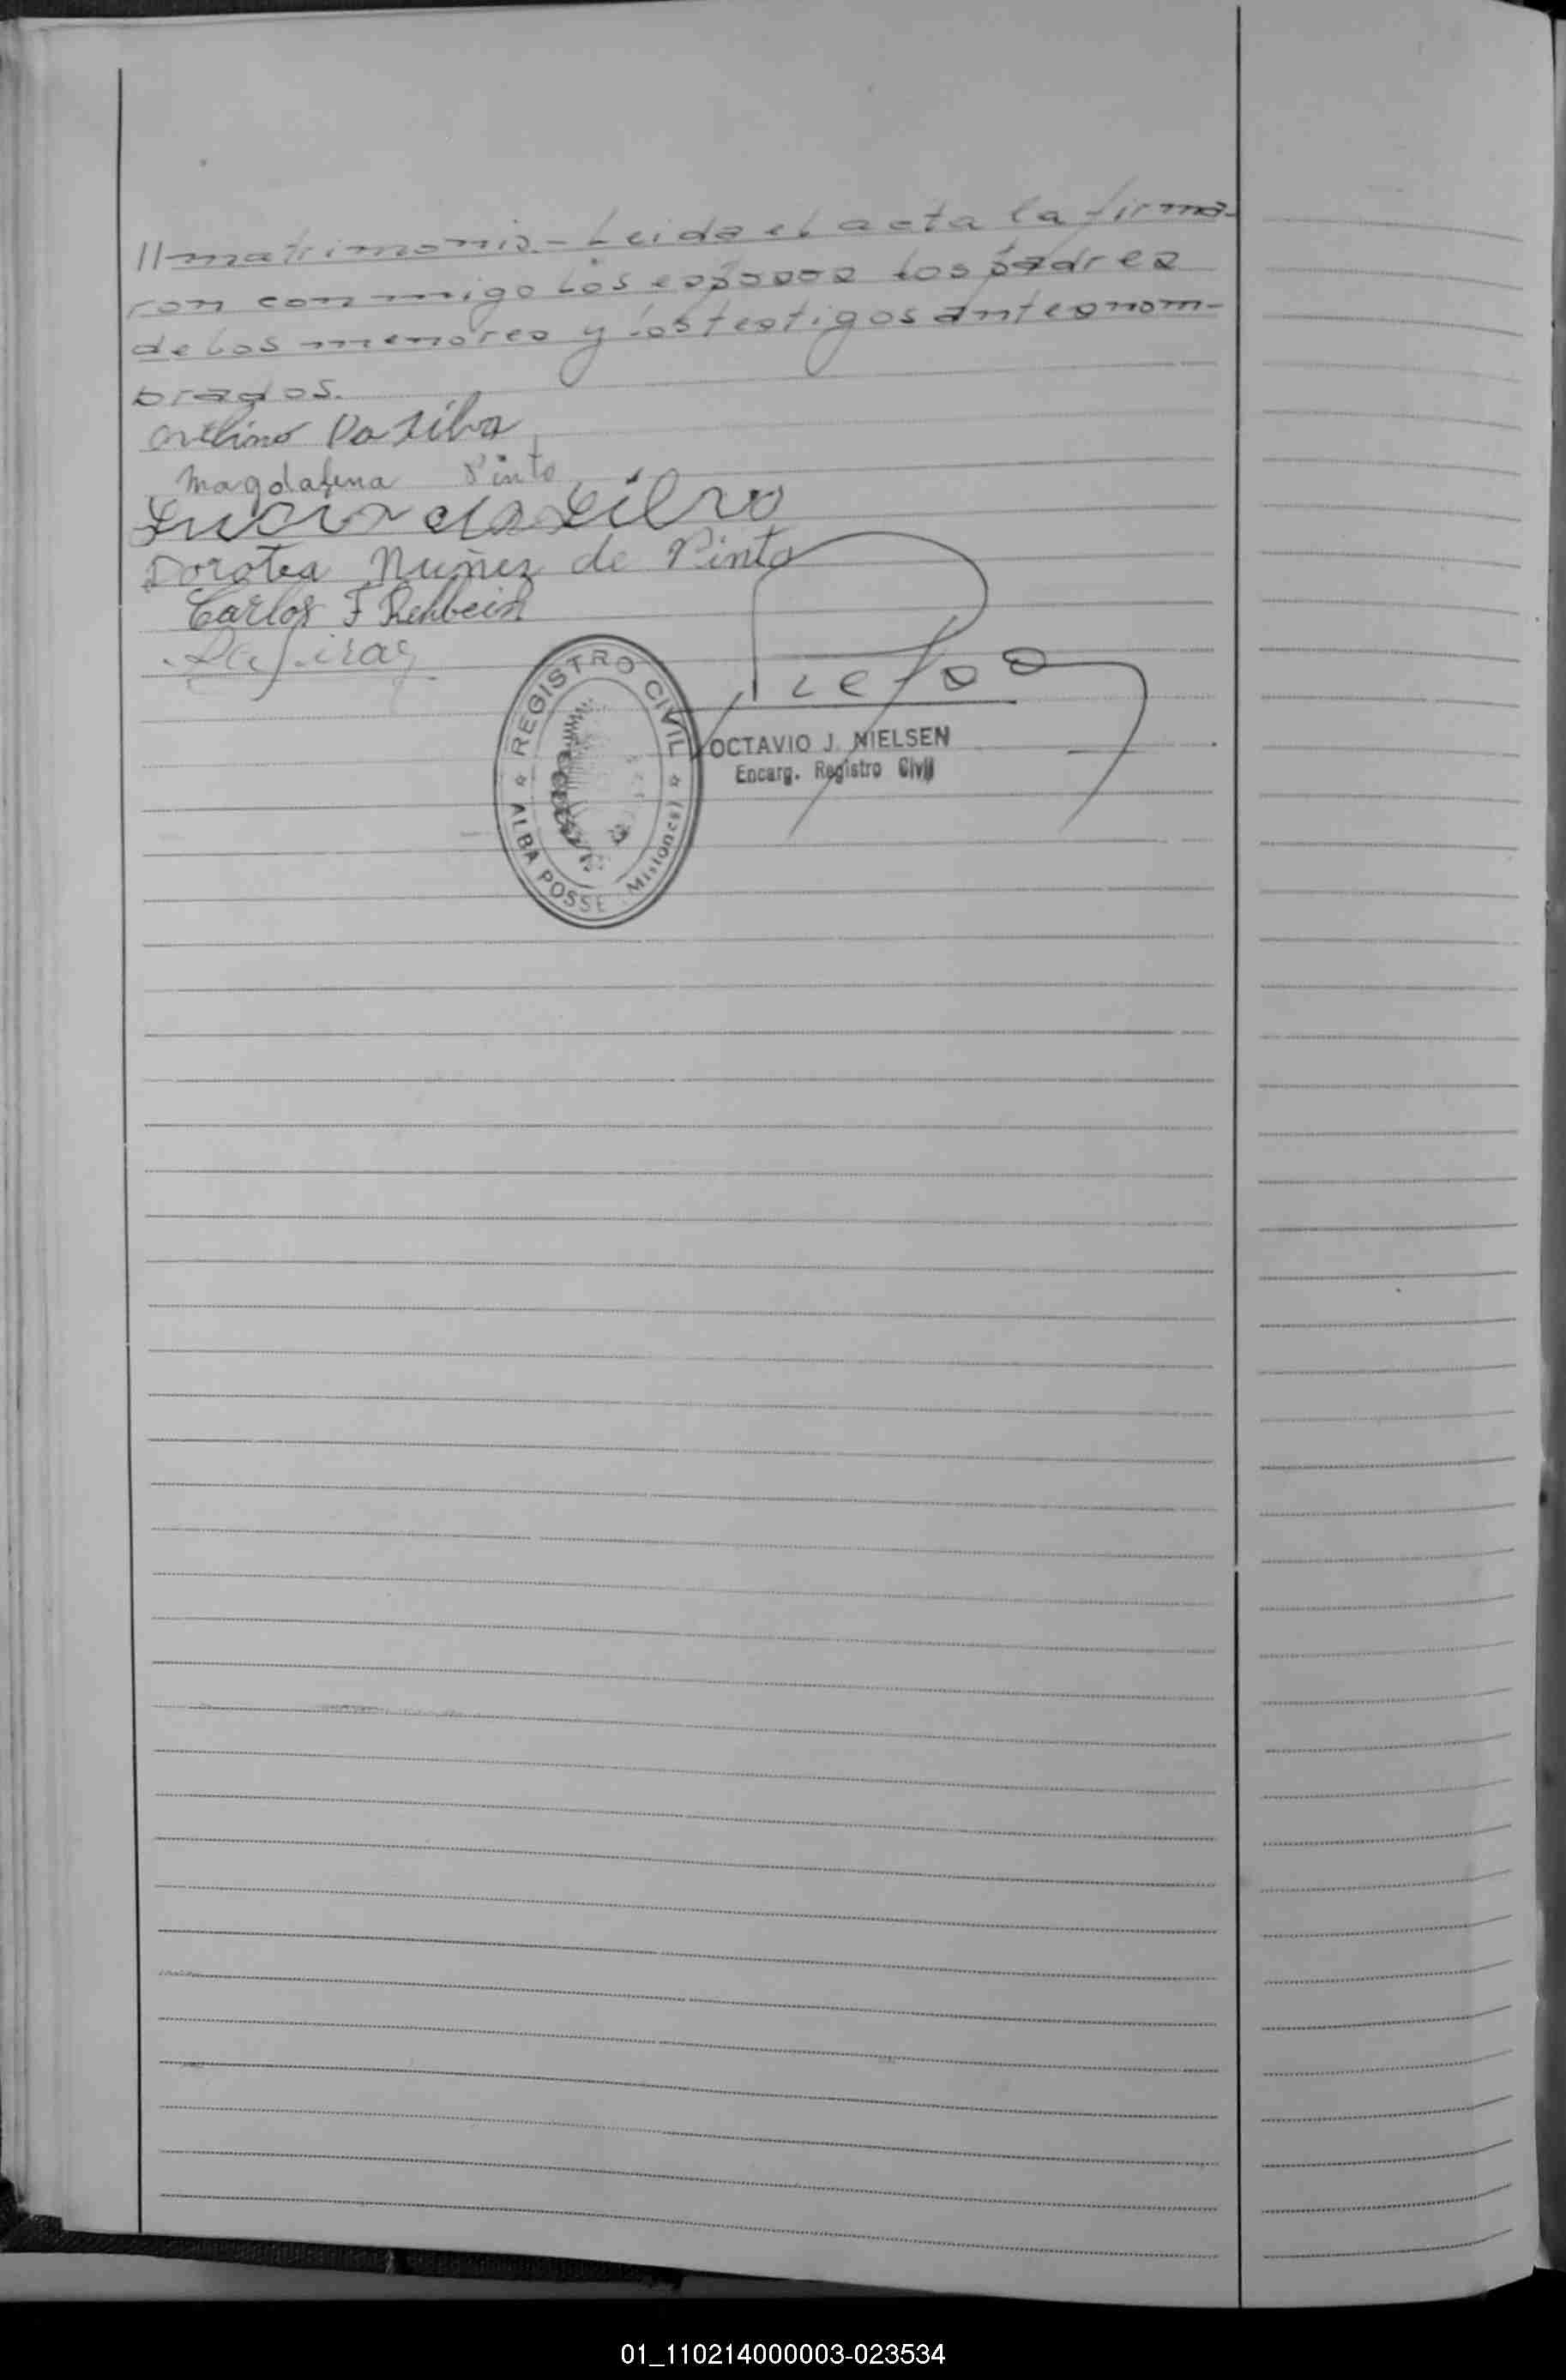 //matrimonio - Leida el acta la firma-
ron conmigo los esposos los padres
de los menores y los testigos antesnom-
brados.
Ortlino Da Silva
Magdalena Pinto
da Silva
Dorotea Nuñez de Pinto
Carlos F Rehbein
REGISTRO CIVIL
ALBA POSSE (Misiones)
OCTAVIO J. NIELSEN
Encarg. Registro Civil
01_110214000003-023534